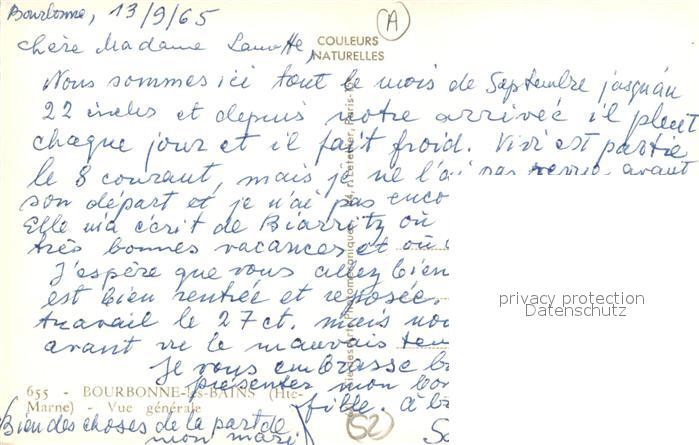 Bourbonne, 13/9/65
A
Chère Madame Lamotte,
COULEURS
NATURELLES
Nous sommes ici tout le mois de Septembre jusqu'au
22 inclus et depuis notre arrivée il pleut
chaque jour et il fait froid. Vivi est partie
le 8 courant, mais je ne l'ai pas revue avant
son départ et je n'ai pas enco
Elle m'a écrit de Biarritz où
très bonnes vacances et où
J'espère que vous allez bien
est bien rentrée et reposée.
travail le 27 ct. mais nou
avant vu le mauvais tem
Je vous embrasse b
présenter mon bon
fille. à b
655 - BOURBONNE-les-BAINS (Hte-
Marne) - Vue générale
Bien des choses de la part de
mon mari
52
privacy protection
Datenschutz